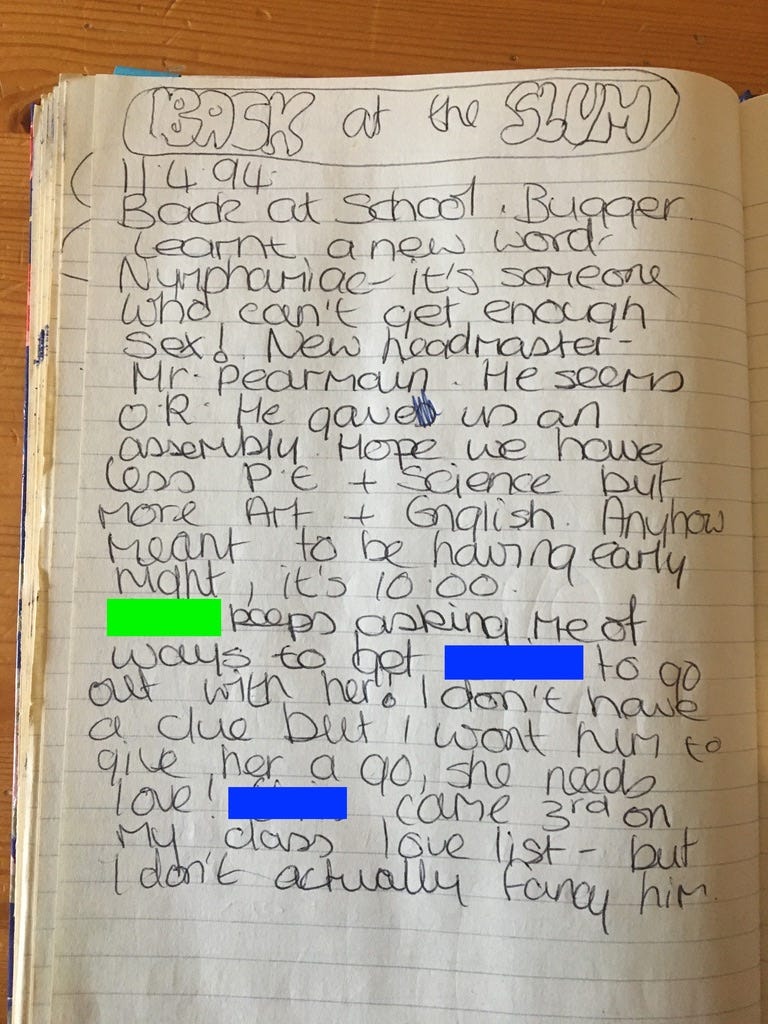 BACK at the SLUM
11.4.94.
Back at School. Bugger.
Learnt a new word-
Nymphaniac- it's someone
who can't get enough
Sex! New headmaster-
Mr. Pearmain. He seems
O.K. He gave us an
assembly. Hope we have
less P.E + Science but
more Art + English. Anyhow
meant to be having early
night, it's 10.00.
keeps asking me of
ways to get to go
out with her! I don't have
a clue but I want him to
give her a go, she needs
love! came 3rd on
my class love list - but
I don't actually fancy him.